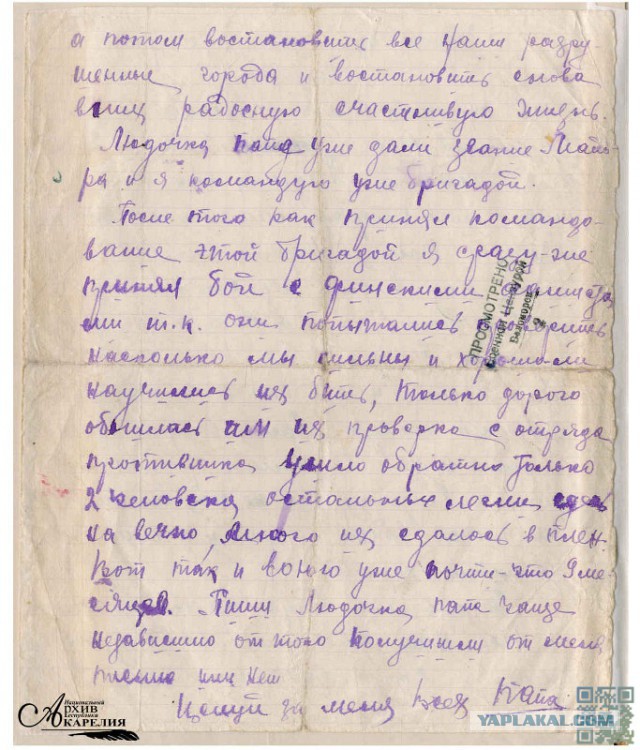 а потом востановить все наши разру
шенные города и востановить снова
вашу радосную счастливую жизнь.
Людочка папе уже дали звание Майо-
ра и я командую уже бригадой.
После того как принял командо-
вание этой бригадой я сразу-же
принял бой с финскими фашиста
ми т.к. они попытались проверить
насколько мы сильны и хорошо-ли
научились их бить, только дорого
обошлась им их проверка с отряда
противника ушло обратно только
2 человека остальные легли здесь
на вечно, много их сдалось в плен.
Вот так и воюю уже почти-что 9 ме-
сяцев. Пиши Людочка папе чаще
независимо от того получили от меня
письмо или нет
Целуй за меня всех Папа
ПРОСМОТРЕНО
Военной Цензурой
Беломорск
2
Национальный
АРХИВ
Республики
КАРЕЛИЯ
YAPLAKAL.COM